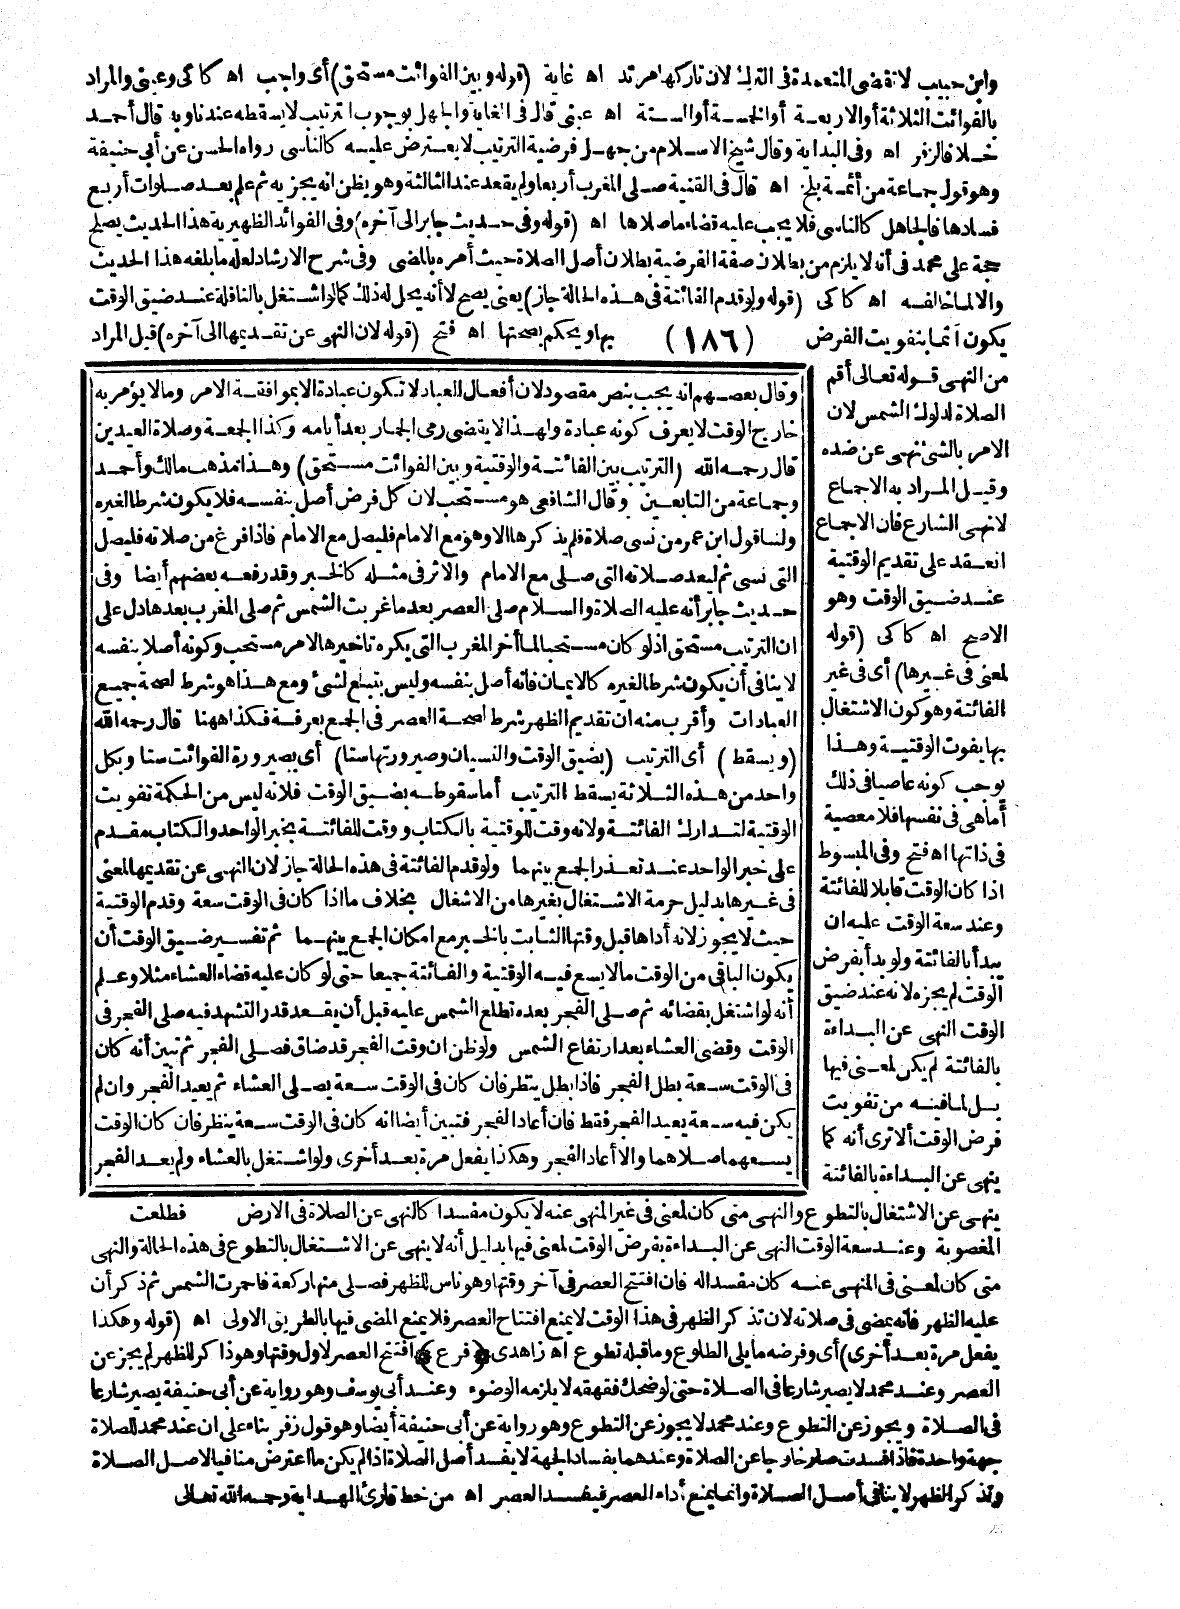 وابن حبيب لا تقضى المتعمدة فى الترك لان تاركها مرتد اه غاية (قوله وبين الفوائت مستحق) أى واجب اه كاكى وعينى والمراد
بالفوائت الثلاثة أو الاربعة أو الخمسة أو الستة اه عينى قال فى الغاية والجهل بوجوب الترتيب لا يسقطه عندنا وبه قال أحمد
خلافا لزفر اه وفى البداية وقال شيخ الاسلام من جهل فرضية الترتيب لا يعترض عليه كالناسى رواه الحسن عن أبى حنيفة
وهو قول جماعة من أئمة بلخ اه قال فى القنية صلى المغرب أربعا ولم يقعد عند الثالثة وهو يظن انه يجزيه ثم علم بعد صلوات أربع
فسادها فالجاهل كالناسى فلا يجب عليه قضاء ما صلاها اه (قوله وفى حديث جابر الى آخره) وفى الفوائد الظهيرية هذا الحديث يصلح
حجة على محمد فى أنه لا يلزم من بطلان صفة الفرضية بطلان أصل الصلاة حيث أمره بالمضى وفى شرح الارشاد لعله ما بلغه هذا الحديث
والالما خالفه اه كاكى (قوله ولو قدم الفائتة فى هذه الحالة جاز) يعنى يصح لا أنه يحل له ذلك كما لو اشتغل بالنافلة عند ضيق الوقت
يكون آثما بتفويت الفرض (١٨٦) بها ويحكم بصحتها اه فتح (قوله لان النهى عن تقديمها الى آخره) قيل المراد
من النهى قوله تعالى أقم
الصلاة لدلوك الشمس لان
الامر بالشئ نهى عن ضده
وقيل المراد به الاجماع
لا نهى الشارع فان الاجماع
انعقد على تقديم الوقتية
عند ضيق الوقت وهو
الاصح اه كاكى (قوله
لمعنى فى غيرها) أى فى غير
الفائتة وهو كون الاشتغال
بها يفوت الوقتية وهذا
يوجب كونه عاصيا فى ذلك
أما هى فى نفسها فلا معصية
فى ذاتها اه فتح وفى المبسوط
اذا كان الوقت قابلا للفائتة
وعند سعة الوقت عليه ان
يبدأ بالفائتة ولو بدأ بفرض
الوقت لم يجزه لانه عند ضيق
الوقت النهى عن البداءة
بالفائتة لم يكن لمعنى فيها
بل لما فيه من تفويت
فرض الوقت ألا ترى أنه كما
ينهى عن البداءة بالفائتة
وقال بعضهم انه يجب بنص مقصود لان أفعال العباد لا تكون عبادة الا بموافقة الامر وما لا يؤمر به
خارج الوقت لا يعرف كونه عبادة ولهذا لا يقتضى رمى الجمار بعد أيامه وكذا الجمعة وصلاة العيدين
قال رحمه الله (الترتيب بين الفائتة والوقتية وبين الفوائت مستحق) وهذا مذهب مالك وأحمد
وجماعة من التابعين وقال الشافعى هو مستحب لان كل فرض أصل بنفسه فلا يكون شرطا لغيره
ولنا قول ابن عمر من نسى صلاة فلم يذكرها الا وهو مع الامام فليصل مع الامام فاذا فرغ من صلاته فليصل
التى نسى ثم ليعد صلاته التى صلى مع الامام والاثر فى مثله كالخبر وقد رفعه بعضهم أيضا وفى
حديث جابر أنه عليه الصلاة والسلام صلى العصر بعد ما غربت الشمس ثم صلى المغرب بعدها دل على
ان الترتيب مستحق اذ لو كان مستحبا لما أخر المغرب التى يكره تاخيرها لامر مستحب وكونه أصلا بنفسه
لا ينافى أن يكون شرطا لغيره كالايمان فانه أصل بنفسه وليس بتبع لشئ ومع هذا هو شرط لصحة جميع
العبادات وأقرب منه ان تقديم الظهر شرط لصحة العصر فى الجمع بعرفة فكذا ههنا قال رحمه الله
(ويسقط) أى الترتيب (بضيق الوقت والنسيان وصيرورتها ستا) أى بصيرورة الفوائت ستا وبكل
واحد من هذه الثلاثة يسقط الترتيب أما سقوطه بضيق الوقت فلانه ليس من الحكمة تفويت
الوقتية لتدارك الفائتة ولانه وقت للوقتية بالكتاب ووقت للفائتة بخبر الواحد والكتاب مقدم
على خبر الواحد عند تعذر الجمع بينهما ولو قدم الفائتة فى هذه الحالة جاز لان النهى عن تقديمها لمعنى
فى غيرها بدليل حرمة الاشتغال بغيرها من الاشغال بخلاف ما اذا كان فى الوقت سعة وقدم الوقتية
حيث لا يجوز لانه أداها قبل وقتها الثابت بالخبر مع امكان الجمع بينهما ثم تفسير ضيق الوقت أن
يكون الباقى من الوقت ما لا يسع فيه الوقتية والفائتة جميعا حتى لو كان عليه قضاء العشاء مثلا وعلم
أنه لو اشتغل بقضائه ثم صلى الفجر بعده تطلع الشمس عليه قبل أن يقعد قدر التشهد فيه صلى الفجر فى
الوقت وقضى العشاء بعد ارتفاع الشمس ولو ظن ان وقت الفجر قد ضاق فصلى الفجر ثم تبين أنه كان
فى الوقت سعة بطل الفجر فاذا بطل ينظر فان كان فى الوقت سعة يصلى العشاء ثم يعيد الفجر وان لم
يكن فيه سعة يعيد الفجر فقط فان أعاد الفجر فتبين أيضا انه كان فى الوقت سعة ينظر فان كان الوقت
يسعهما صلاهما والا أعاد الفجر وهكذا يفعل مرة بعد أخرى ولو اشتغل بالعشاء ولم يعد الفجر
ينهى عن الاشتغال بالتطوع والنهى متى كان لمعنى فى غير المنهى عنه لا يكون مفسدا كالنهى عن الصلاة فى الارض فطلعت
المغصوبة وعند سعة الوقت النهى عن البداءة بفرض الوقت لمعنى فيها بدليل أنه لا ينهى عن الاشتغال بالتطوع فى هذه الحالة والنهى
متى كان لمعنى فى المنهى عنه كان مفسدا له فان افتتح العصر فى آخر وقتها وهو ناس للظهر فصلى منها ركعة فاحمرت الشمس ثم ذكر أن
عليه الظهر فانه يمضى فى صلاته لان تذكر الظهر فى هذا الوقت لا يمنع افتتاح العصر فلا يمنع المضى فيها بالطريق الاولى اه (قوله وهكذا
يفعل مرة بعد أخرى) أى وفرضه ما يلى الطلوع وما قبله تطوع اه زاهدى ﴿فرع﴾ افتتح العصر لاول وقتها وهو ذاكر للظهر لم يجز عن
العصر وعند محمد لا يصير شارعا فى الصلاة حتى لو ضحك فقهقه لا يلزمه الوضوء وعند أبى يوسف وهو رواية عن أبى حنيفة يصير شارعا
فى الصلاة ويجوز عن التطوع وعند محمد لا يجوز عن التطوع وهو رواية عن أبى حنيفة أيضا وهو قول زفر بناء على ان عند محمد للصلاة
جهة واحدة فاذا فسدت صار خارجا عن الصلاة وعندهما بفساد الجهة لا يفسد أصل الصلاة اذا لم يكن ما اعترض منافيا لاصل الصلاة
وتذكر الظهر لا ينافى أصل الصلاة وانما يمنع أداء العصر فيفسد العصر اه من خط قارئ الهداية رحمه الله تعالى